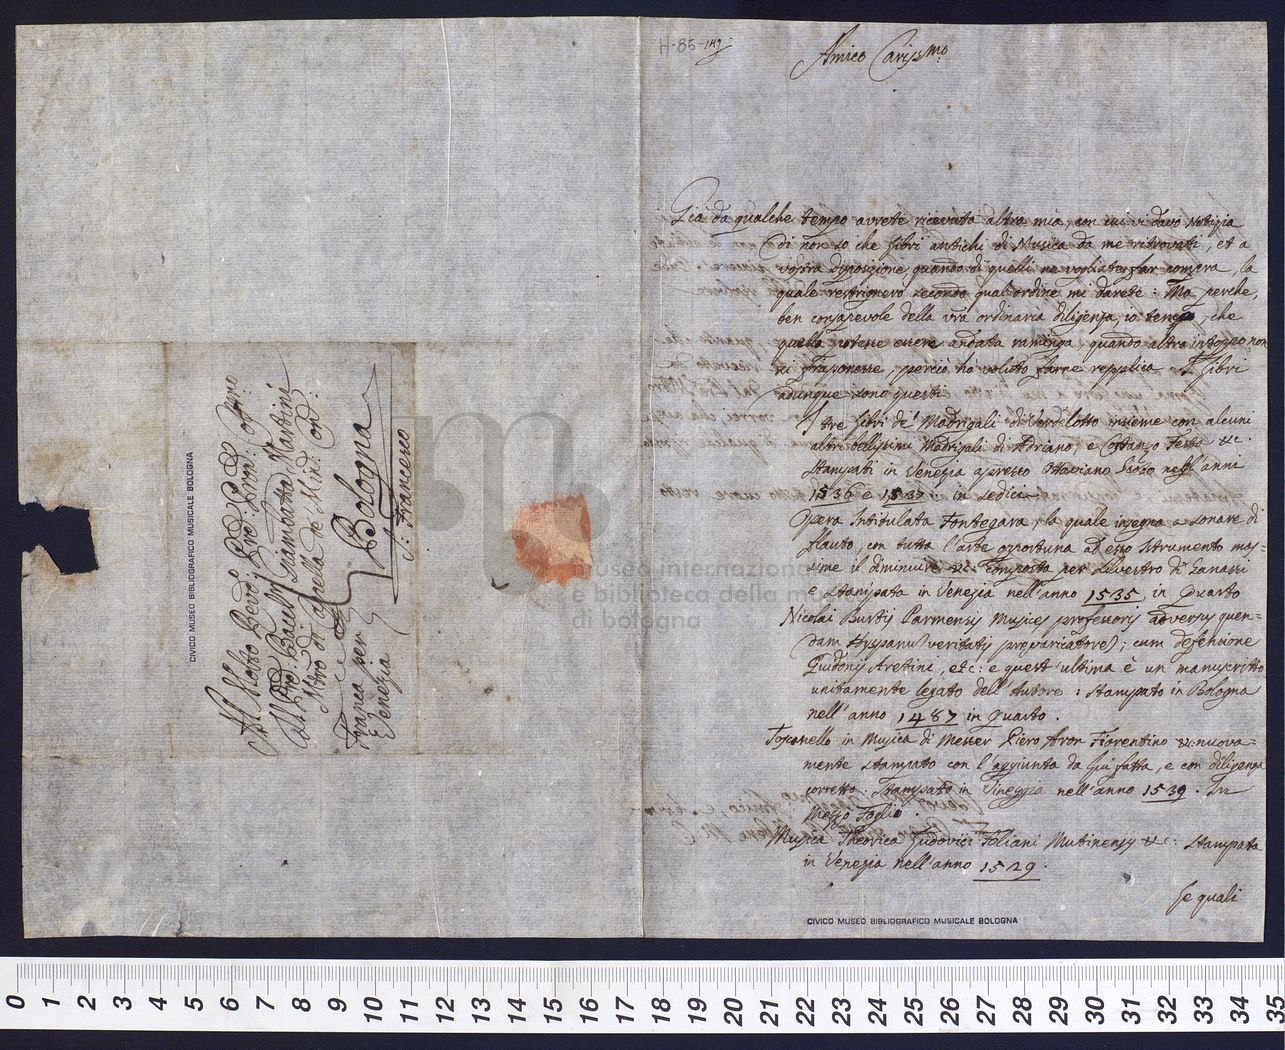 H-85-119
Amico Cariss.mo
Già da qualche tempo avrete ricevuta altra mia, con cui vi davo Notizia
di non so che Libri antichi di Musica da me ritrovati, et a
vostra disposizione, quando di quelli ne vogliate far compra, la
quale restrignerò secondo qual'ordine mi darete: Ma perche,
ben consapevole della vra ordinaria diligenza, io temo, che
quella potesse essere andata raminga, quando altro intoppo non
vi fraponesse, perciò ho voluto farne repplica. I Libri
adunque sono questi
I tre Libri de' Madrigali di Verdilotto insieme con alcuni
altri bellissimi Madrigali di Adriano, e Costanzo Festa &c.
Stampati in Venezia apresso Ottaviano Scotto nell'anni
1536 e 1537 in Sedici
Opera Intitulata Fontegara, la quale insegna a sonare di
flauto, con tutta l'arte opportuna ad esso Istrumento mas=
sime il diminuire &c: composta per Silvestro di Ganassi
e stampata in Venezia nell'anno 1535 in Quarto
Nicolai Burtij Parmensis Musices professoris adversus quen=
dam Hyspanu (veritatis prevaricatore); cum defensione
Guidonis Aretini, etc: e quest'ultima è un manuscritto
unitamente legato dell'Autore: Stampato in Bologna
nell'anno 1487 in Quarto.
Toscanello in Musica di Messer Piero Aron Fiorentino &c: nuova=
mente stampato con l'aggiunta da lui fatta, e con diligenza
corretto. Stampato in Vineggia nell'anno 1539. In
Mezzo Foglio.
Musica Theorica Ludovici Foliani Mutinensis &c: Stampata
in Venezia nell'anno 1529.
Se quali
Al Molto Revdo Pre: Pron: Osspmo:
Il Pre: Bacel Giambatta Martini
Mtro di Capella de' Min: Con:
Franca per
Venezia
Bologna
S. Francesco
CIVICO MUSEO BIBLIOGRAFICO MUSICALE BOLOGNA
CIVICO MUSEO BIBLIOGRAFICO MUSICALE BOLOGNA
museo internazionale
e biblioteca della musica
di bologna
0 1 2 3 4 5 6 7 8 9 10 11 12 13 14 15 16 17 18 19 20 21 22 23 24 25 26 27 28 29 30 31 32 33 34 35